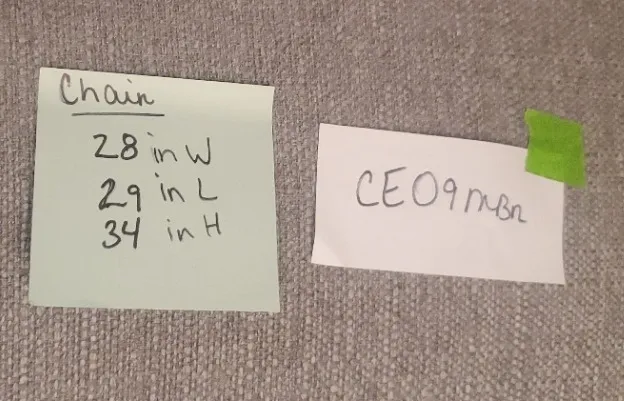 Chair
28 in W
29 in L
34 in H
CE09MBn